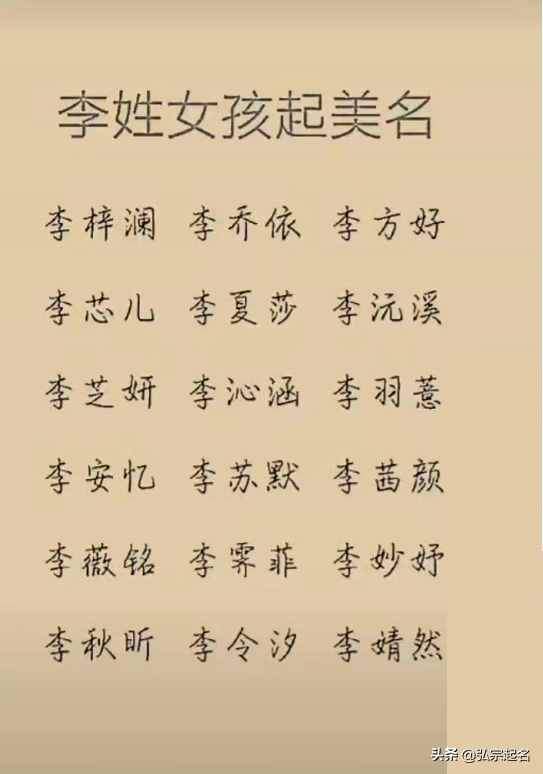 李姓女孩起美名
李梓澜 李乔依 李方好
李芯儿 李夏莎 李沅溪
李芝妍 李沁涵 李羽薏
李安忆 李苏默 李茜颜
李薇铭 李霁菲 李妙妤
李秋昕 李令汐 李婧然
头条 @弘宗起名